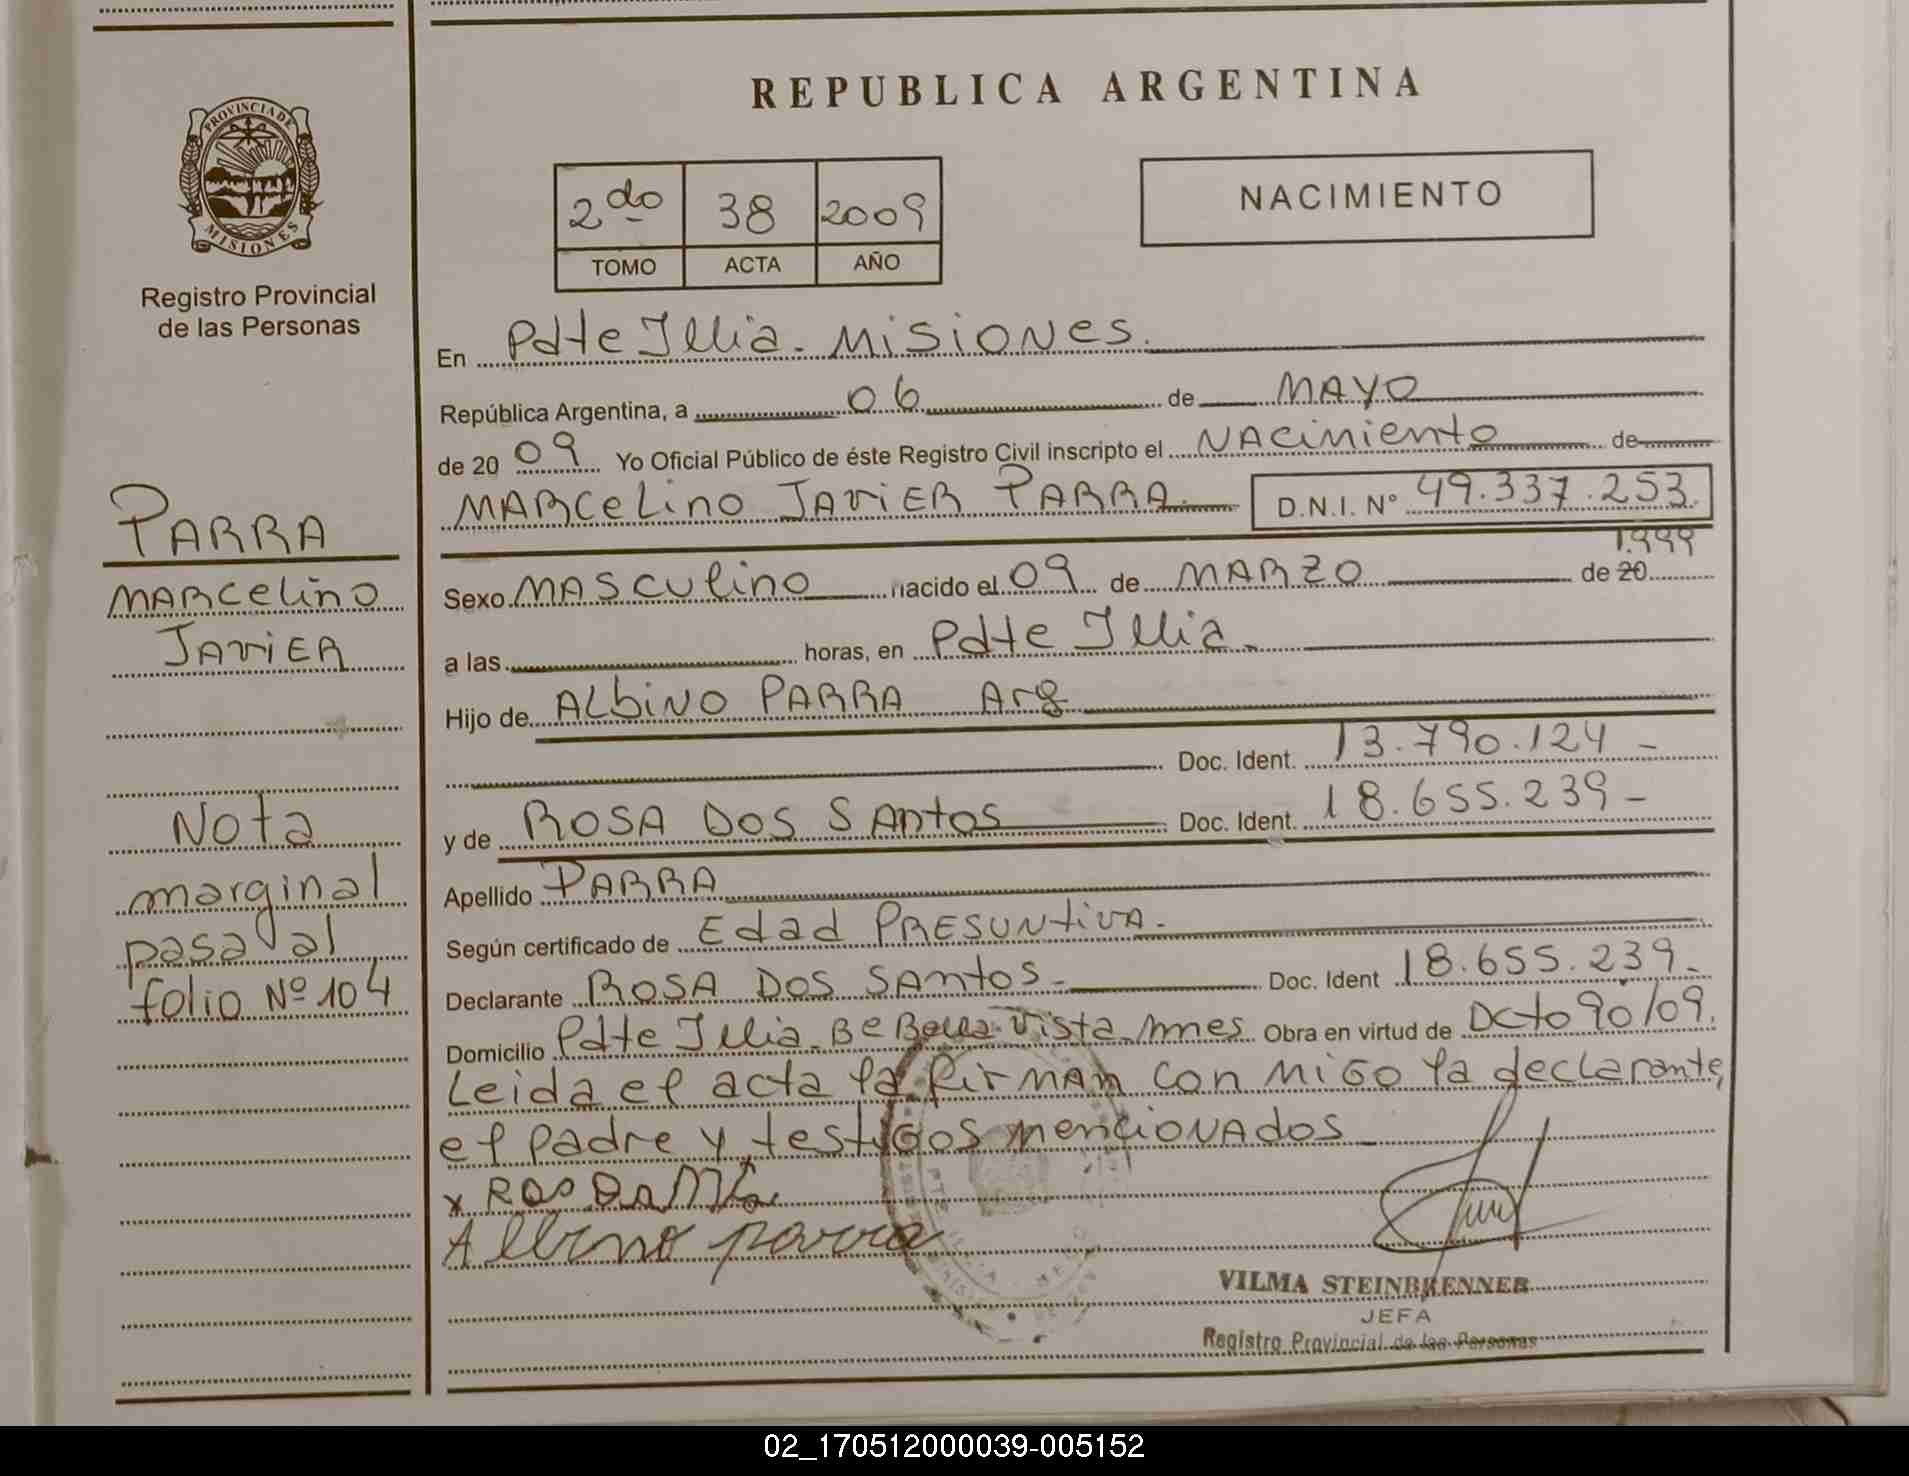 REPUBLICA ARGENTINA
PROVINCIA DE
MISIONES
Registro Provincial
de las Personas
2do 38 2009
TOMO ACTA AÑO
NACIMIENTO
En Pdte Illia - MISIONES.
República Argentina, a 06 de MAYO
de 20 09 Yo Oficial Público de éste Registro Civil inscripto el NACimiento de
MARCeLino JAViER PARRA. D.N.I. Nº 49.337.253.
PARRA
MARCeLino
JAViER
Nota
marginal
pasa al
folio Nº 104
1.999
Sexo MASCULino nacido el 09 de MARZO de 20
a las horas, en Pdte Illia.
Hijo de ALbiNO PARRA Arg
Doc. Ident. 13.790.124 -
y de ROSA DOS SANtos Doc. Ident. 18.655.239 -
Apellido PARRA
Según certificado de Edad PRESUNtiVA.
Declarante ROSA DOS SANtos - Doc. Ident 18.655.239 -
Domicilio Pdte Illia - Bº Bella Vista Mnes. Obra en virtud de Dcto 90/09.
Leida el acta la firMAN con MiGO la declarante,
el padre y testiGOS mencioNAdos
x
Albino parra
VILMA STEINBRENNER
JEFA
Registro Provincial de las Personas
02_170512000039-005152